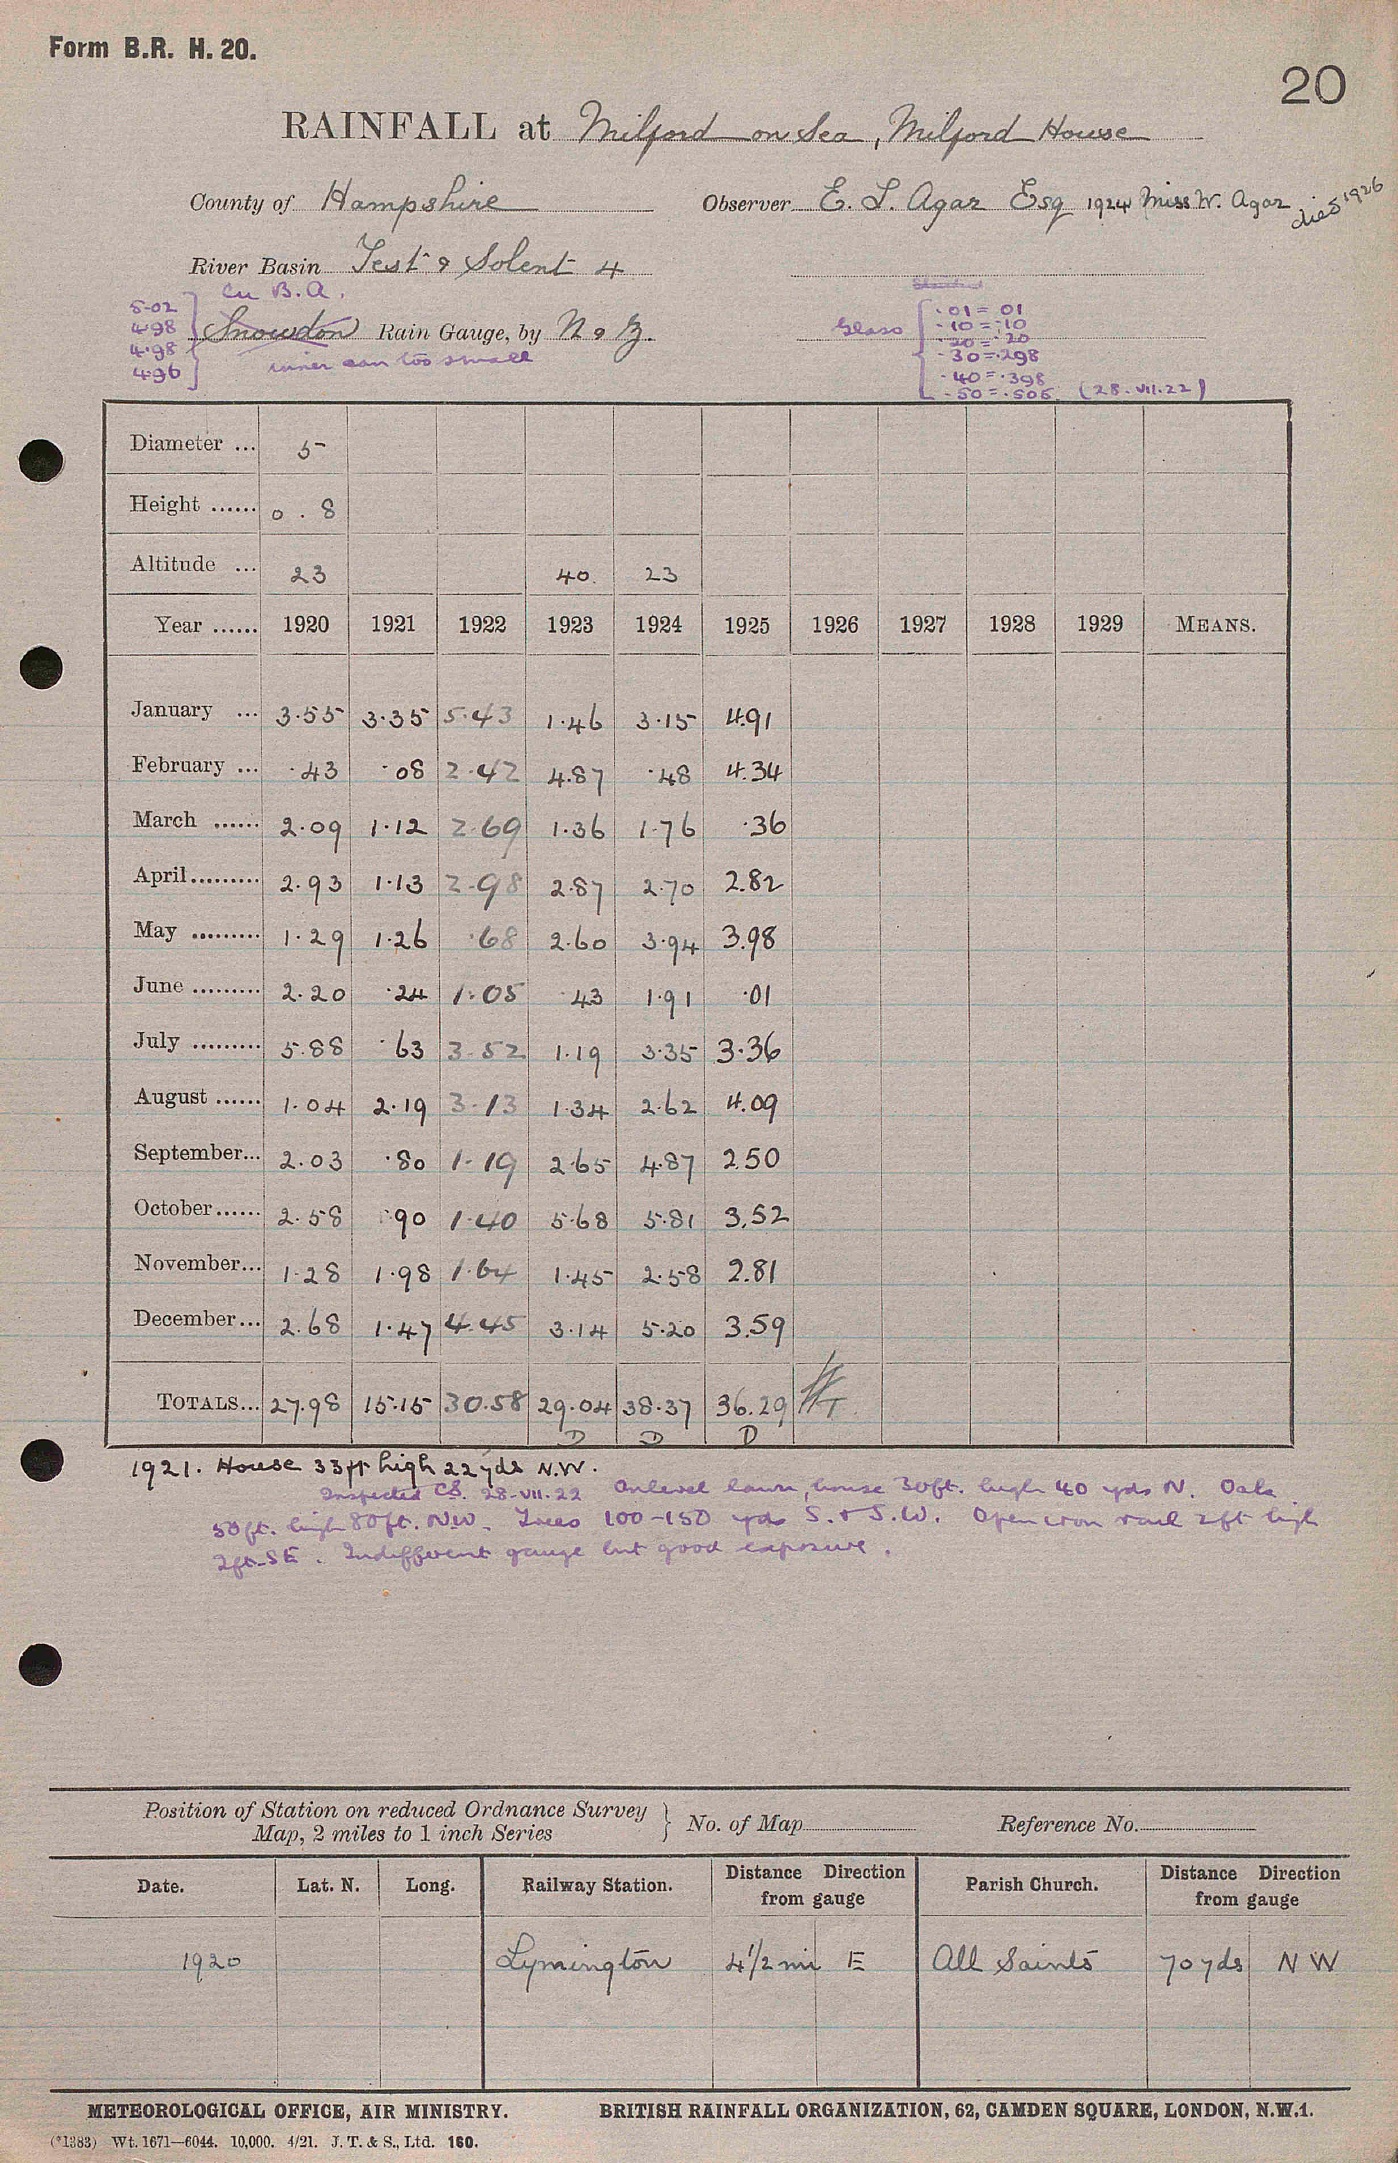 Form B.R. H. 20.
20
RAINFALL at Milford on Sea, Milford House
County of Hampshire Observer E. L. Agar Esq 1924 Miss W. Agar died 1926
River Basin Test & Solent 4
Cu B.A.
5.02
4.98
4.98
4.96
Snowdon Rain Gauge, by N & Z.
inner can too small
Glass
.01 = 01
.10 = .10
.20 = .20
.30 = .298
.40 = .398
.50 = .505 (28.VII.22)
Diameter ... 5
Height ...... 0 . 8
Altitude ... 23 40 23
Year ...... 1920 1921 1922 1923 1924 1925 1926 1927 1928 1929 MEANS.
January ... 3.55 3.35 5.43 1.46 3.15 4.91
February ... .43 .08 2.42 4.87 .48 4.34
March ...... 2.09 1.12 2.69 1.36 1.76 .36
April ......... 2.93 1.13 2.98 2.87 2.70 2.82
May ......... 1.29 1.26 .68 2.60 3.94 3.98
June ......... 2.20 .24 1.05 .43 1.91 .01
July ......... 5.88 .63 3.52 1.19 3.35 3.36
August ...... 1.04 2.19 3.13 1.34 2.62 4.09
September... 2.03 .80 1.19 2.65 4.87 2.50
October...... 2.58 .90 1.40 5.68 5.81 3.52
November... 1.28 1.98 1.64 1.45 2.58 2.81
December... 2.68 1.47 4.45 3.14 5.20 3.59
TOTALS... 27.98 15.15 30.58 29.04 38.37 36.29
D D D
1921. House 33ft high 22 yds N.W.
Inspected C.S. 28-VII.22 On level lawn, house 30ft. high 40 yds N. Oaks
50ft. high 80ft. N.W. Trees 100-150 yds S. & S.W. Open iron rail 2ft high
2ft-SE. Indifferent gauge but good exposure.
Position of Station on reduced Ordnance Survey Map, 2 miles to 1 inch Series } No. of Map Reference No.
Date. Lat. N. Long. Railway Station. Distance Direction from gauge Parish Church. Distance Direction from gauge
1920 Lymington 4 1/2 mi E All Saints 70 yds N W
METEOROLOGICAL OFFICE, AIR MINISTRY. BRITISH RAINFALL ORGANIZATION, 62, CAMDEN SQUARE, LONDON, N.W.1.
(*1383) Wt. 1671—6044. 10,000. 4/21. J. T. & S., Ltd. 160.